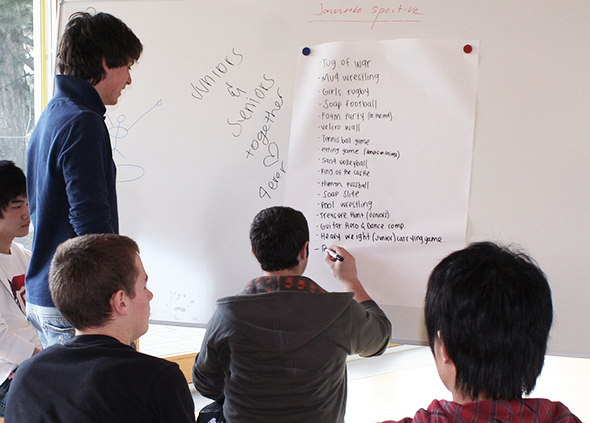 Journée sportive
Juniors
&
Seniors
together
4ever
Tug of war
- Mud wrestling
- Girls rugby
- Soap football
- Foam Party (@ the end)
- velcro wall
- Tennis ball game
- eating game
- Sand volleyball
- King of the castle
- Human fussball
- Soap Slite
- Pool wrestling
- Treasure Hunt (Juniors)
- Guitar Hero & Dance comp.
- Heavy weight (Junior) carrying game.